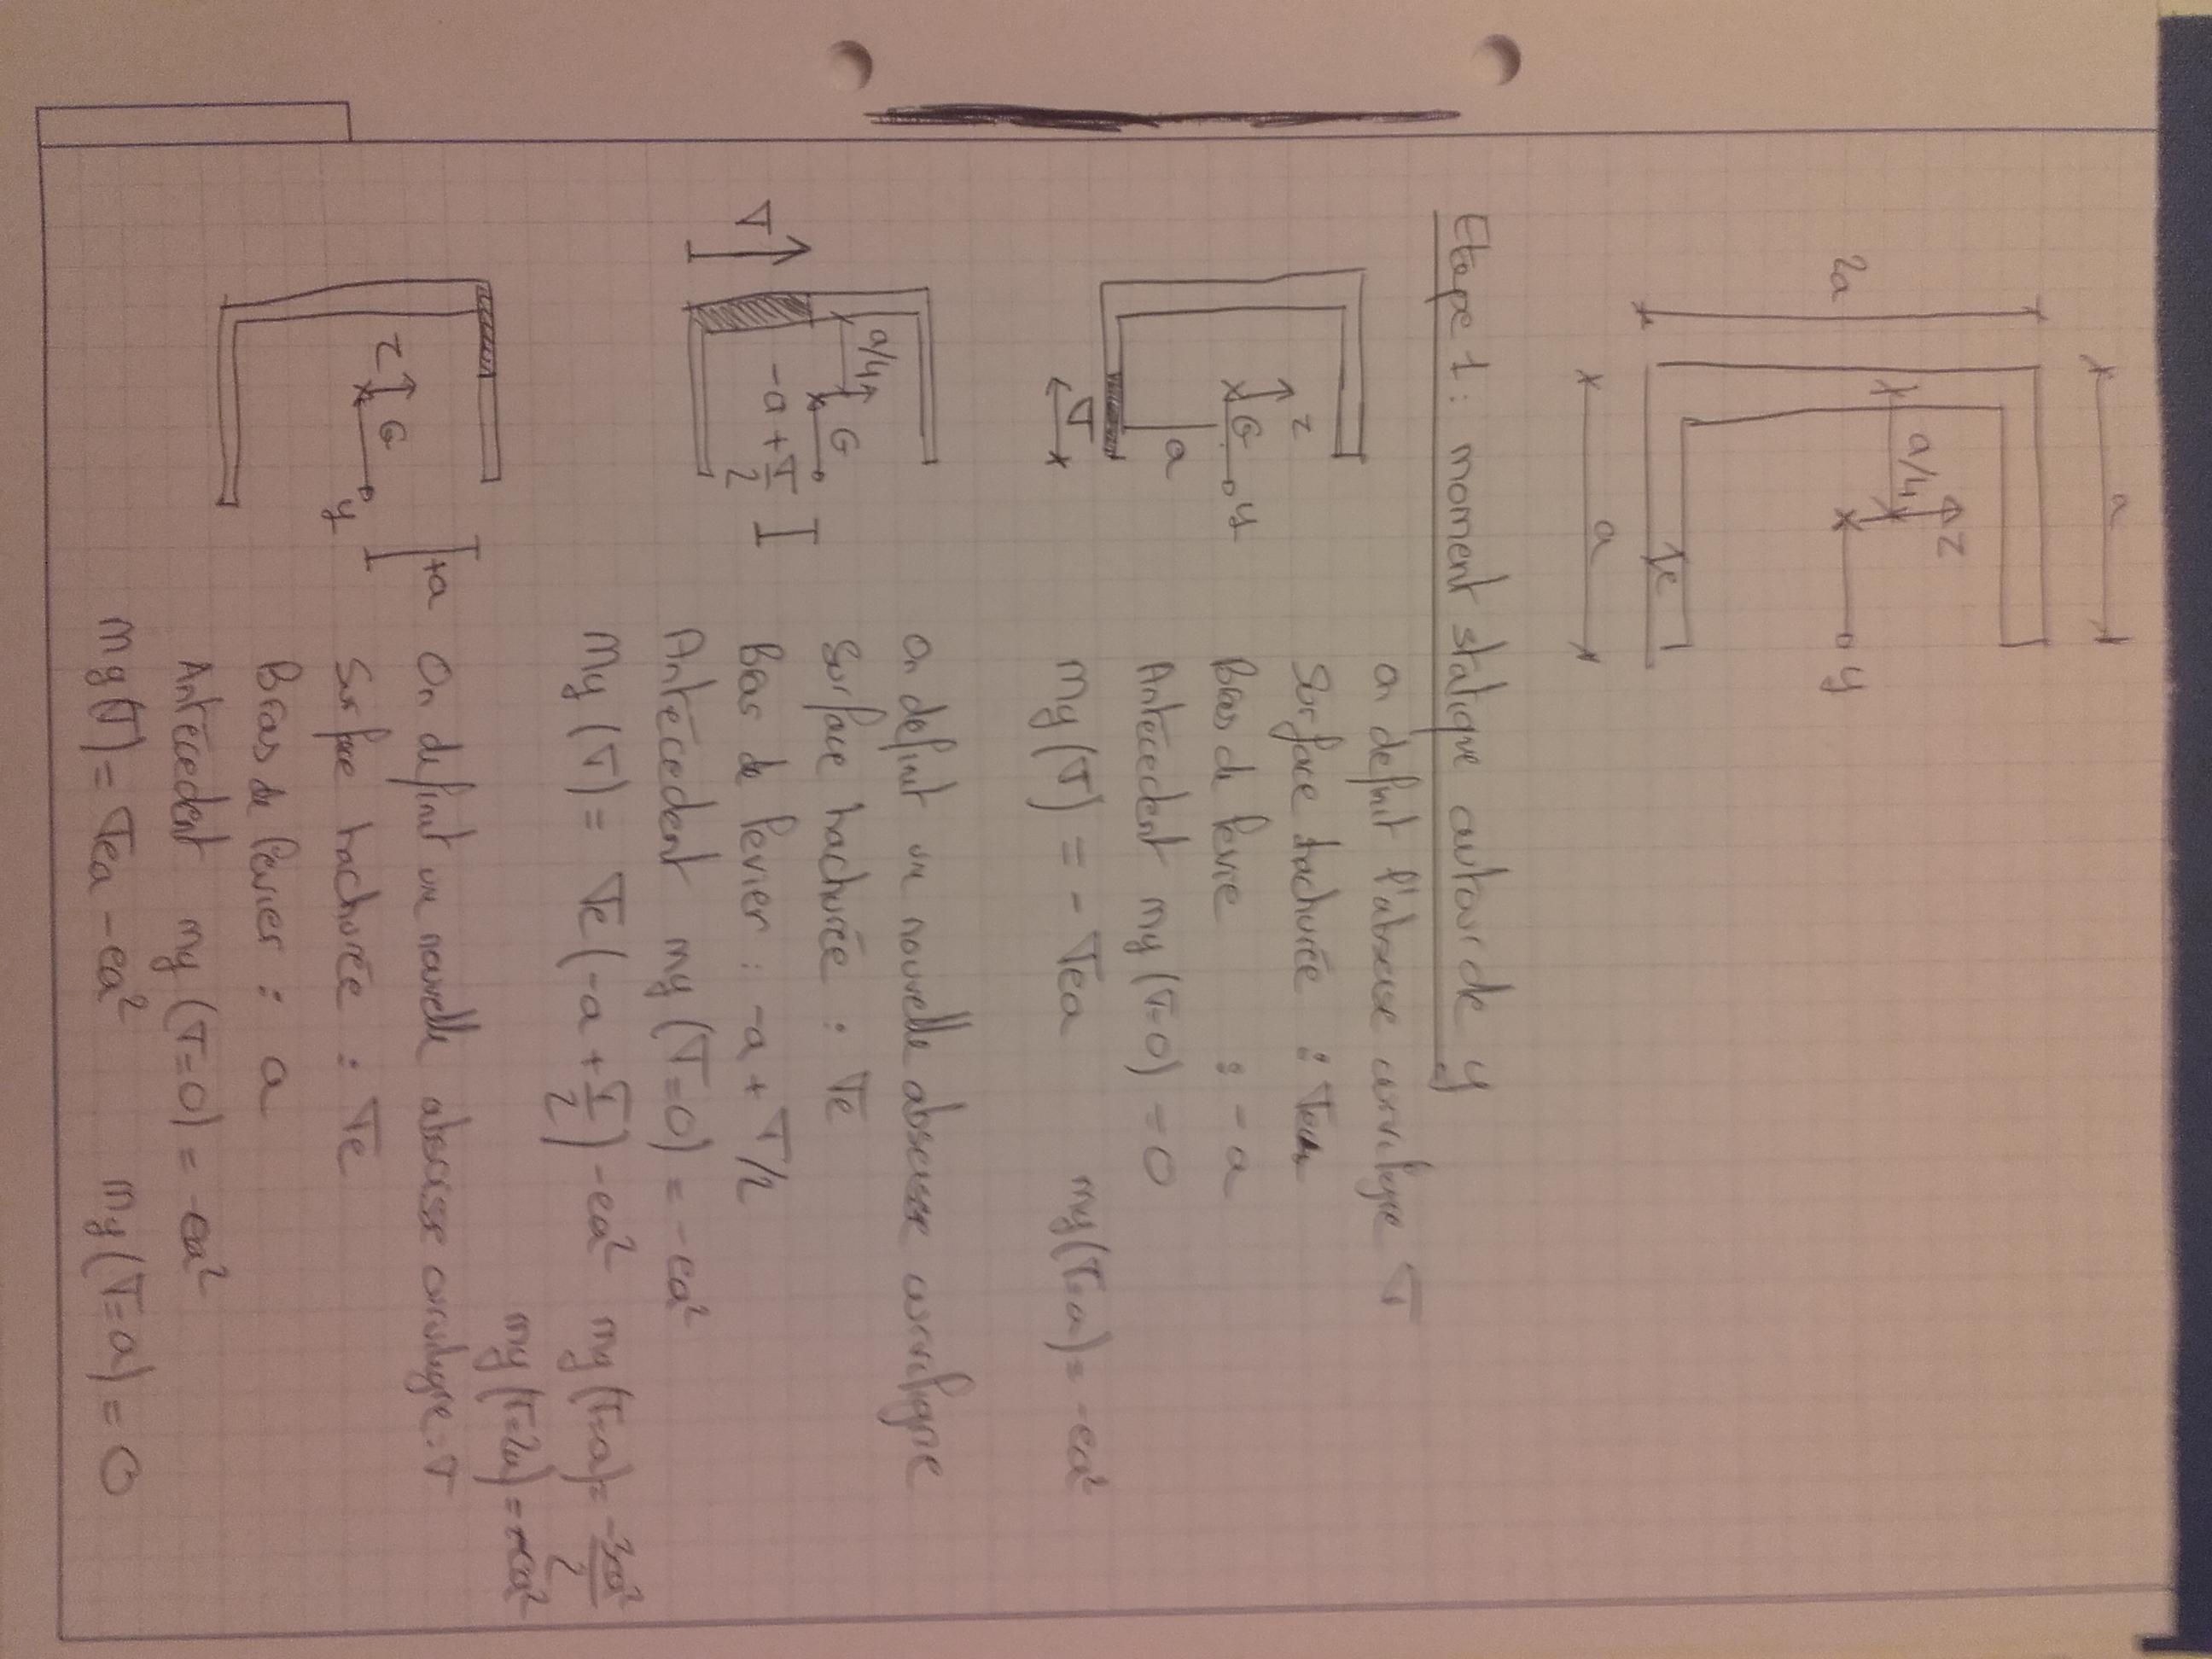 a
2a
a/4
z
y
e
a
Etape 1 : moment statique autour de y
On definit l'abscisse curviligne ∇
z
G
y
a
∇
Surface hachurée :
Bras de levie : -a
Antécedent my (∇=0) = 0
My (∇) = - ∇ea my(∇=a) = -ea²
On definit un nouvelle abscisse curviligne
a/4
G
-a + ∇/2
∇
Surface hachurée : ∇e
Bras de levier : -a + ∇/2
Antécedent my (∇=0) = -ea²
My (∇) = ∇e (-a + ∇/2) - ea² my (∇=a) = -3ea²/2
my (∇=2a) = -ea²
+a
z
G
y
On definit un nouvelle abscisse curviligne : ∇
Surface hachurée : ∇e
Bras de levier : a
Antécedent my (∇=0) = -ea²
my (∇) = ∇ea - ea² my (∇=a) = 0